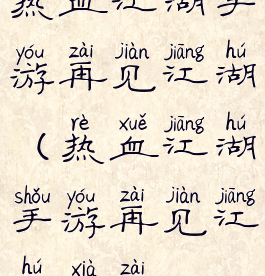 热血江湖手
yóu zài jiàn jiāng hú
游再见江湖
rè xuě jiāng hú
(热血江湖
shǒu yóu zài jiàn jiāng
手游再见江
hú xià zài